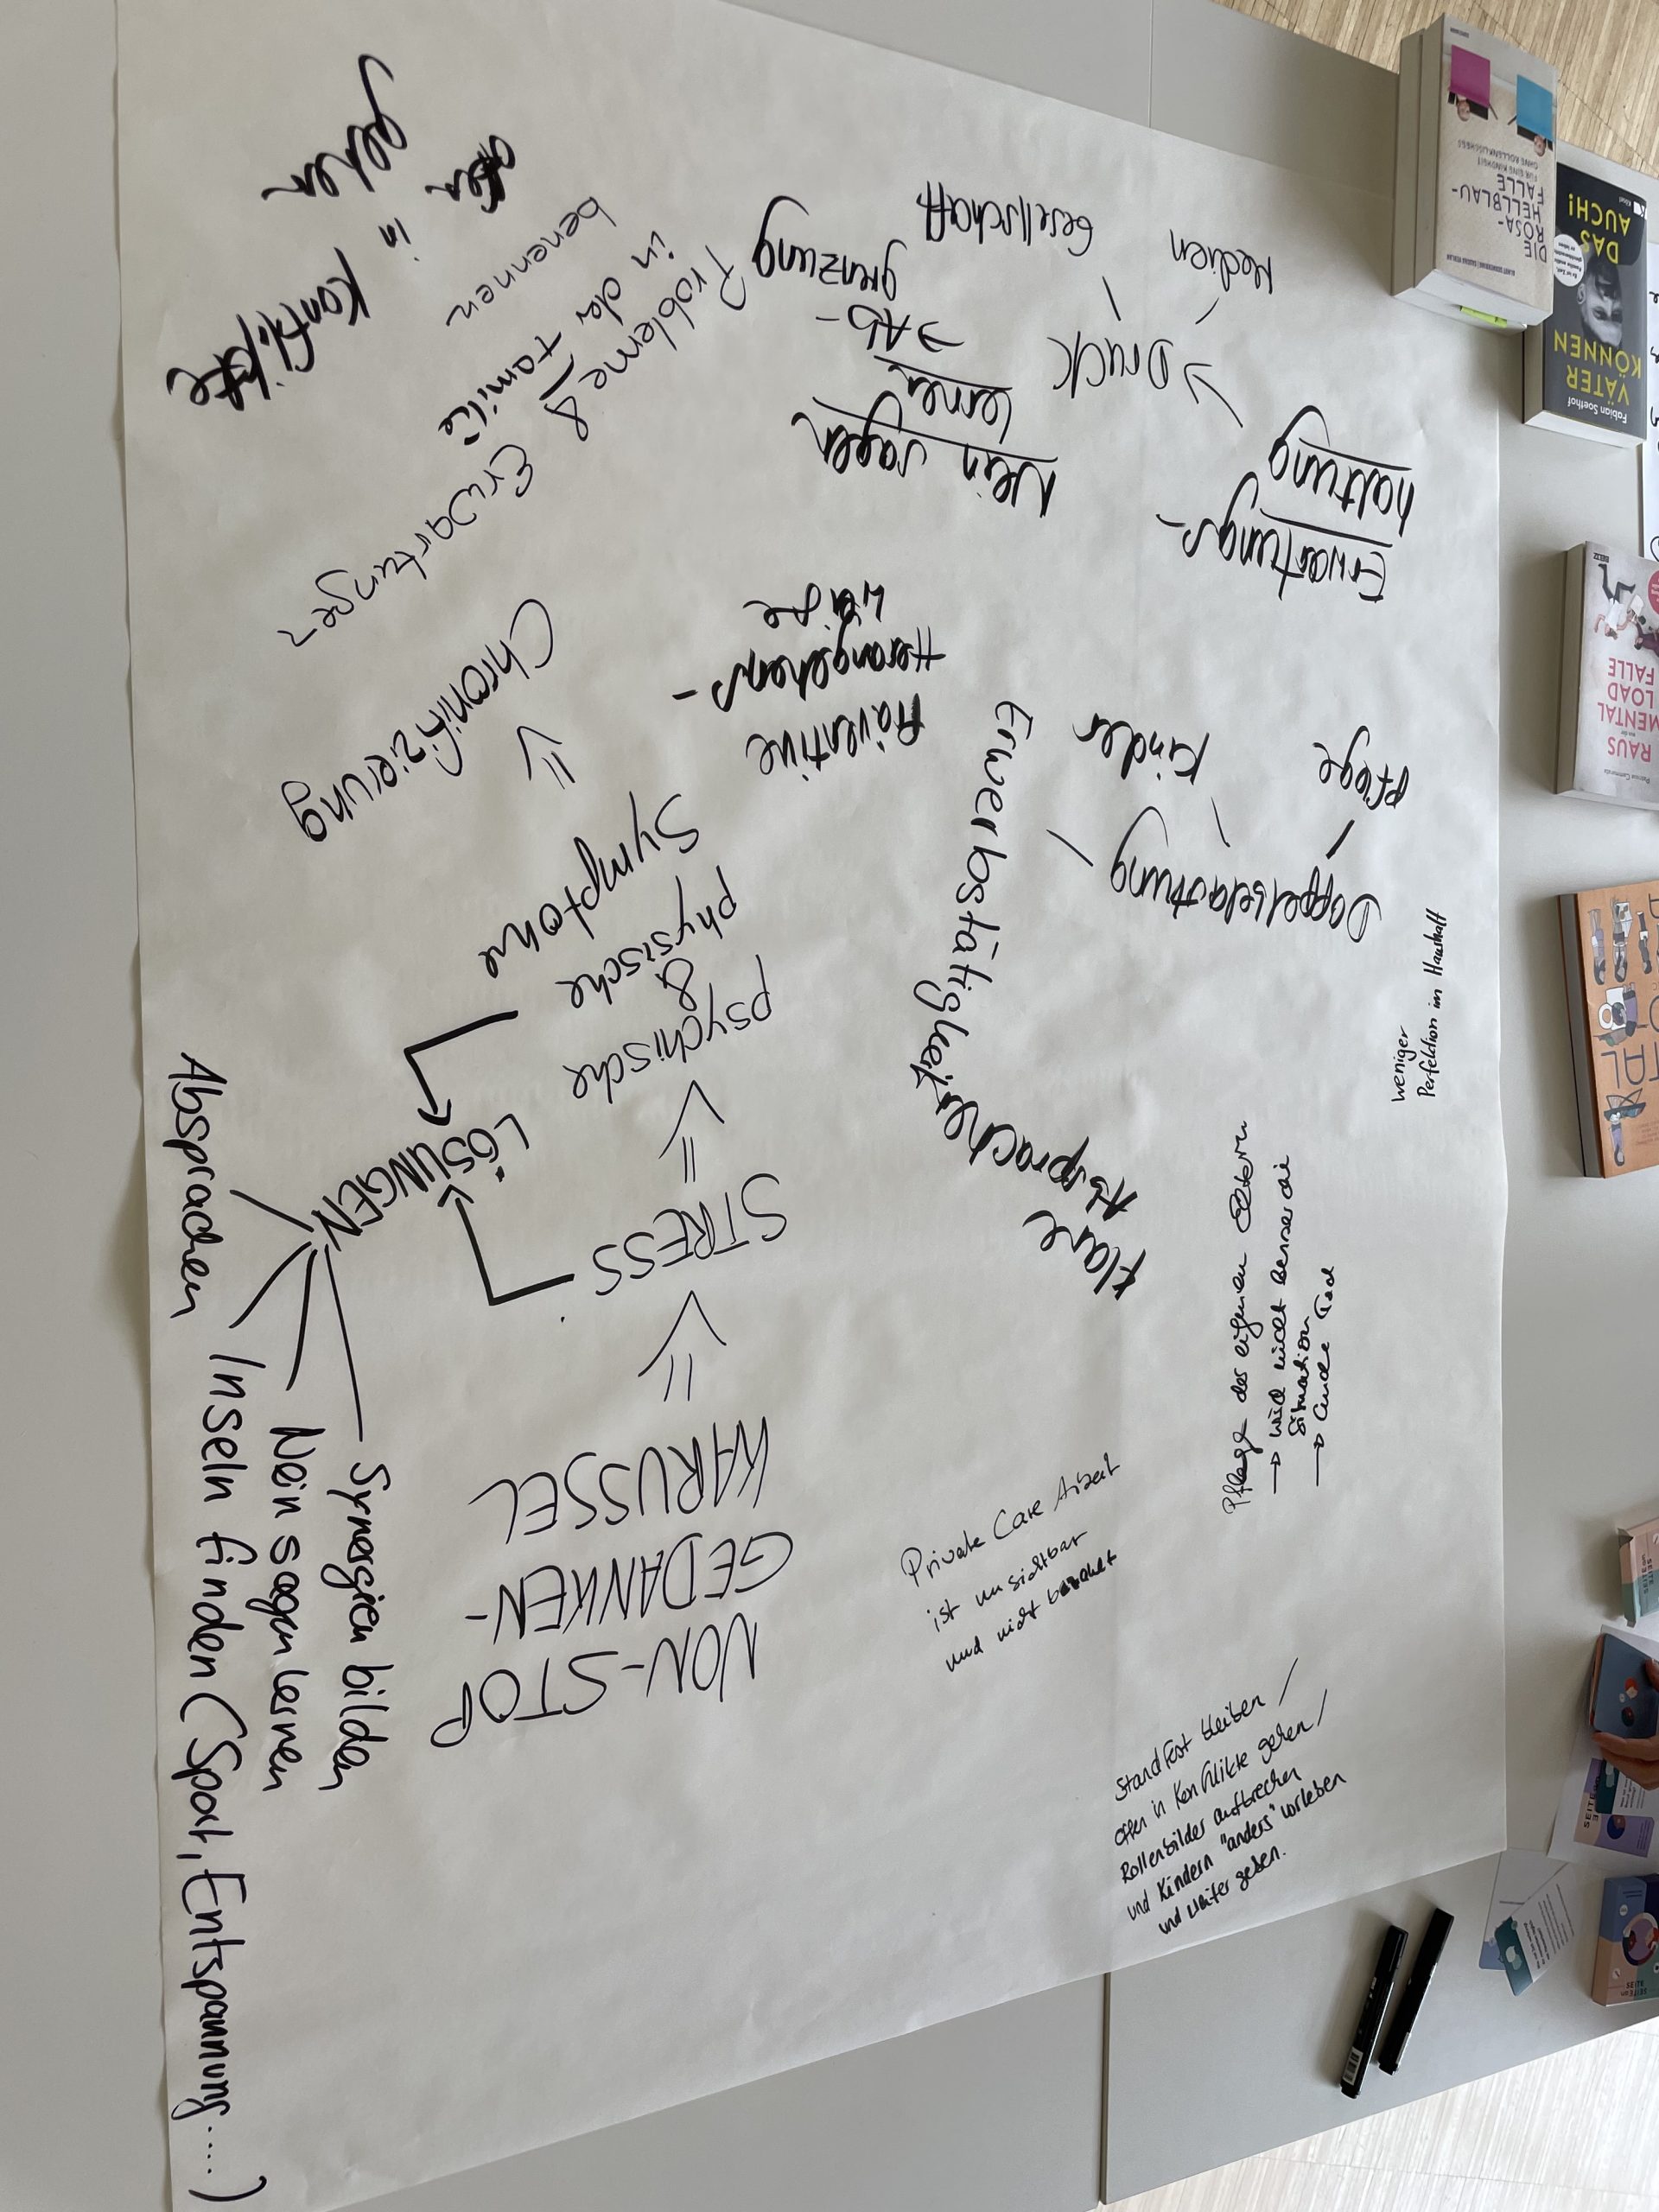 NON-STOP
GEDANKEN-
KARUSSEL
=>
STRESS
=>
psychische
&
physische
Symptome
=>
Chronifizierung
LÖSUNGEN
Absprachen
Inseln finden (Sport, Entspannung.....)
Nein sagen lernen
Synergien bilden
Erwartungen
&
Probleme
in der Familie
benennen
offen
in
Konflikte
gehen
Nein sagen
lernen
→ Ab-
grenzung
Erwartungs-
haltung
→ Druck
Gesellschaft
Medien
Präventive
Herangehens-
weise
Doppelbelastung
Erwerbstätigkeit
Kinder
Pflege
Klare
Absprachen
weniger
Perfektion im Haushalt
Pflege der eigenen Eltern
→ wird nicht besser die
Situation
→ Ende Tod
Private Care Arbeit
ist unsichtbar
und nicht bezahlt
Standfest bleiben /
offen in Konflikte gehen /
Rollenbilder aufbrechen
und Kindern "anders" vorleben
und weiter geben.
DIE
ROSA-
HELLBLAU-
FALLE
FÜR EINE KINDHEIT
OHNE ROLLENKLISCHEES
Fabian Soethof
VÄTER
KÖNNEN
DAS
AUCH!
Kösel
Patricia Cammarata
RAUS
AUS DER
MENTAL
LOAD
FALLE
BELTZ